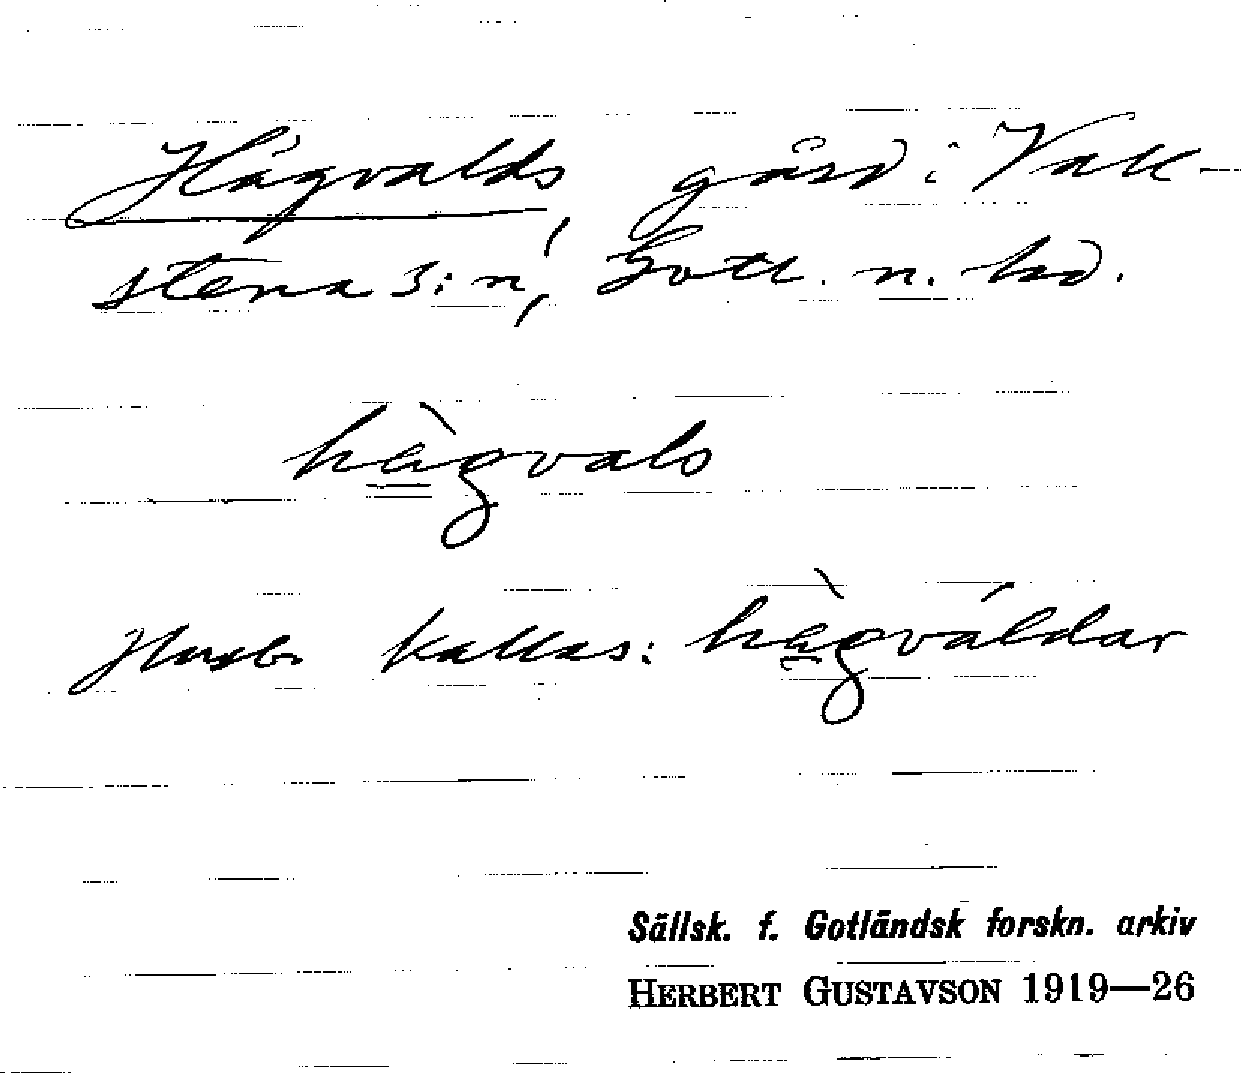 Hägvalds, gård i Vall-
stena s:n, Gotl. n. hd.
hàgvals
Husb. kallas: hàgváldar
Sällsk. f. Gotländsk forskn. arkiv
HERBERT GUSTAVSON 1919—26